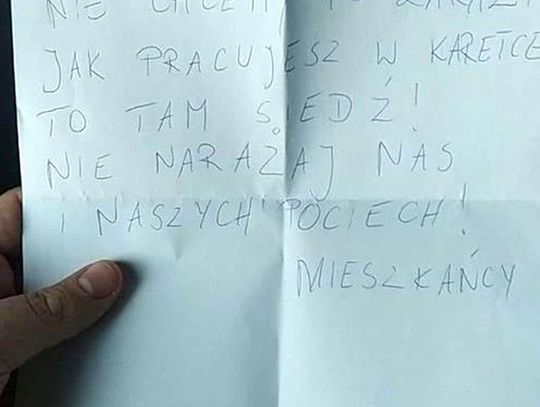 NIE CHCEMY
JAK PRACUJESZ W KARETCE
TO TAM SIEDŹ!
NIE NARAŻAJ NAS
I NASZYCH POCIECH!
MIESZKAŃCY